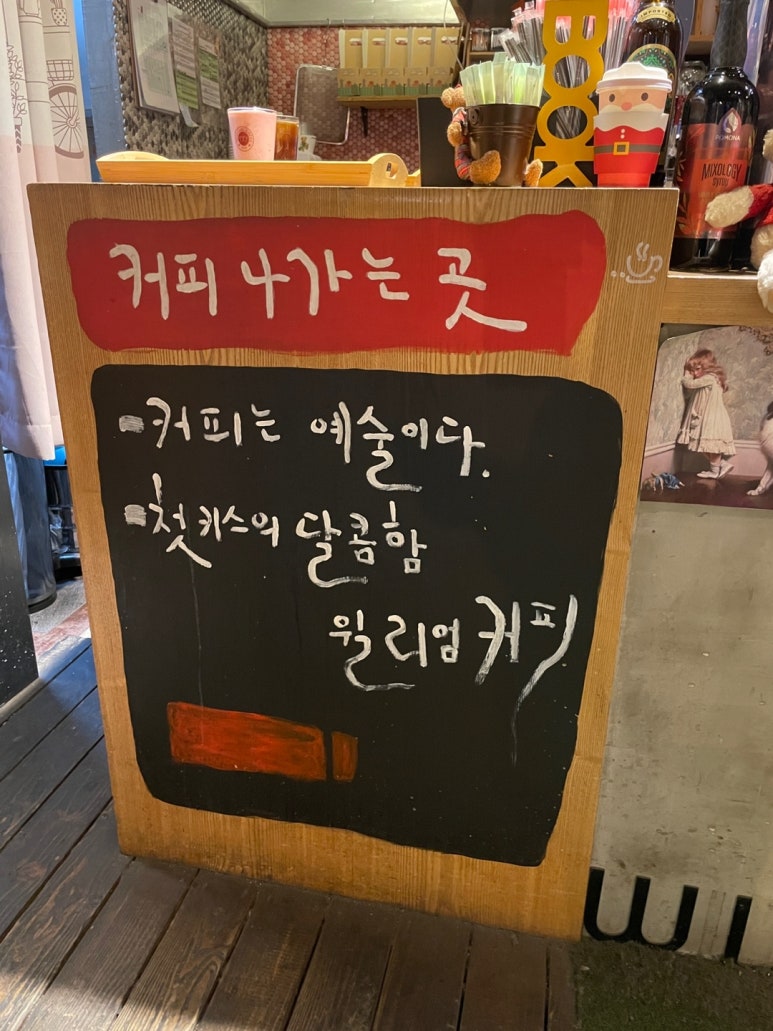 BOOK
POMONA
MIXOLOGY
SYRUP
커피 나가는 곳
커피는 예술이다.
첫키스의 달콤함
윌리엄 커피